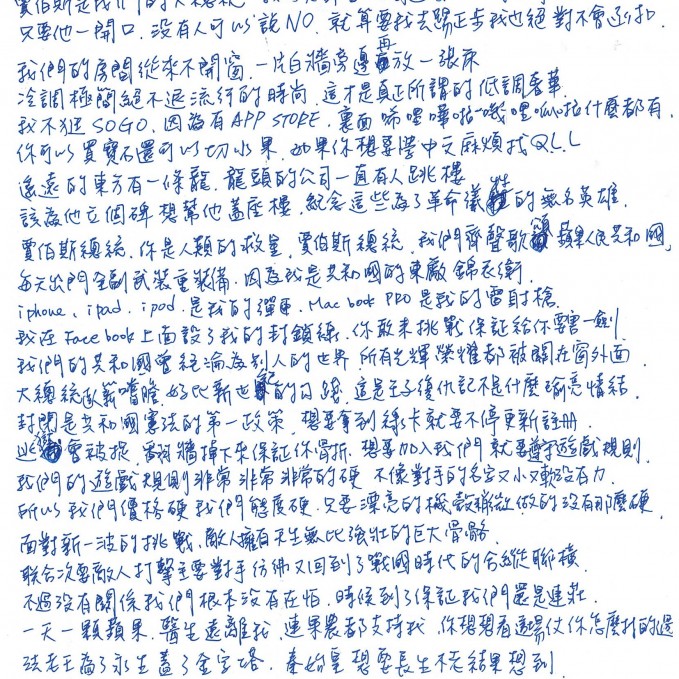 賈伯斯是我們的大總統
只要他一開口,沒有人可以說NO.就算要我去踢正步我也絕對不會
我們的房間從來不開窗,一片白牆旁邊再放一張床
冷調極簡絕不退流行的時尚,這才是真正所謂的低調奢華
我不逛SOGO.因為有APP STORE.裏面唏哩嘩啦嘰哩呱啦什麼都有.
你可以買寶石還可以切水果.如果你想要學中文麻煩找Q.L.L
遙遠的東方有一條龍.龍頭的公司一直有人跳樓
該為他立個碑想幫他蓋座樓,紀念這些為了革命犧牲的無名英雄.
賈伯斯總統.你是人類的救星.賈伯斯總統.我們齊聲歌頌蘋果人民共和國,
每天出門全副武裝重裝備.因為我是共和國的東廠錦衣衛.
iphone、ipad.ipod.是我的彈匣.Mac book PRO是我的雷射槍.
我在Facebook上面設了我的封鎖線.你敢來挑戰保證給你要害一劍
我們的共和國曾經淪為別人的世界.所有光輝榮耀都被關在窗外面.
大總統臥薪嚐膽.好比新世紀的勾踐.這是王子復仇記不是什麼瑜亮情結.
封閉是共和國憲法的第一政策.想要拿到綠卡就要不停更新註冊.
逃獄會被捉.翻牆掉下來保証你骨折.想要加入我們就要遵守遊戲規則.
我們的遊戲規則非常非常非常的硬.不像對手的名字又小又軟沒有力.
所以我們價格硬我們態度硬.只要漂亮的機殼稍微做的沒有那麼硬.
面對新一波的挑戰.敵人擁有天生無比強壯的巨大骨骼.
聯合次要敵人打擊主要對手彷彿又回到了戰國時代的合縱聯橫.
不過沒有關係我們根本沒有在怕.時候到了保証我們還是連莊.
一天一顆蘋果.醫生遠離我.連果農都支持我.你想想看這場仗你怎麼打的過
法老王為了永生蓋了金字塔.秦始皇想要長生不老結果想到.